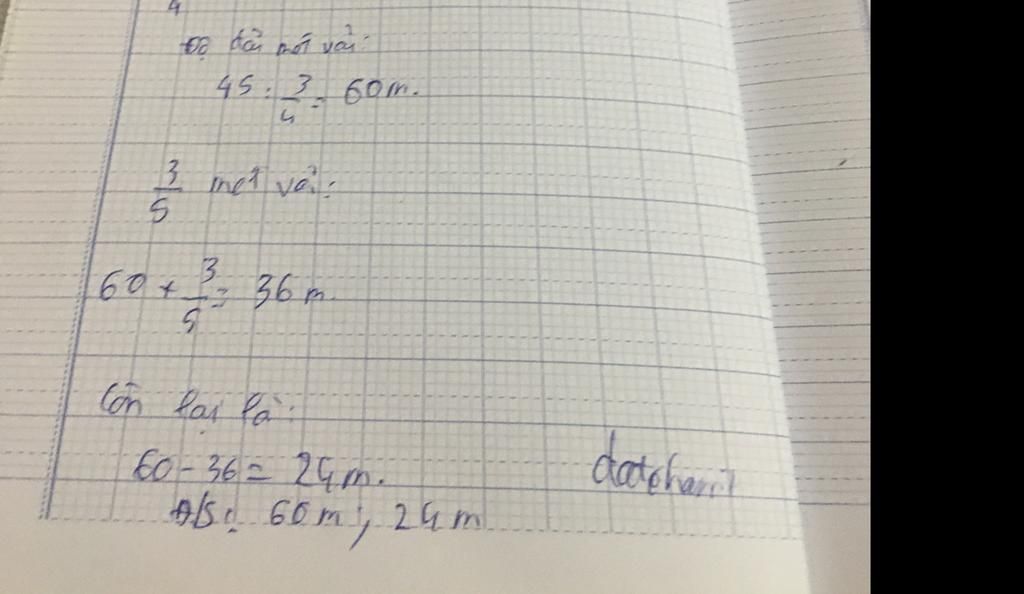 4
Độ dài mét vải:
45 : 3/4 = 60m.
3/5 mét vải:
60 + 3/5 = 36 m.
Còn lại là:
60 - 36 = 24m.
Đ/S: 60m; 24m